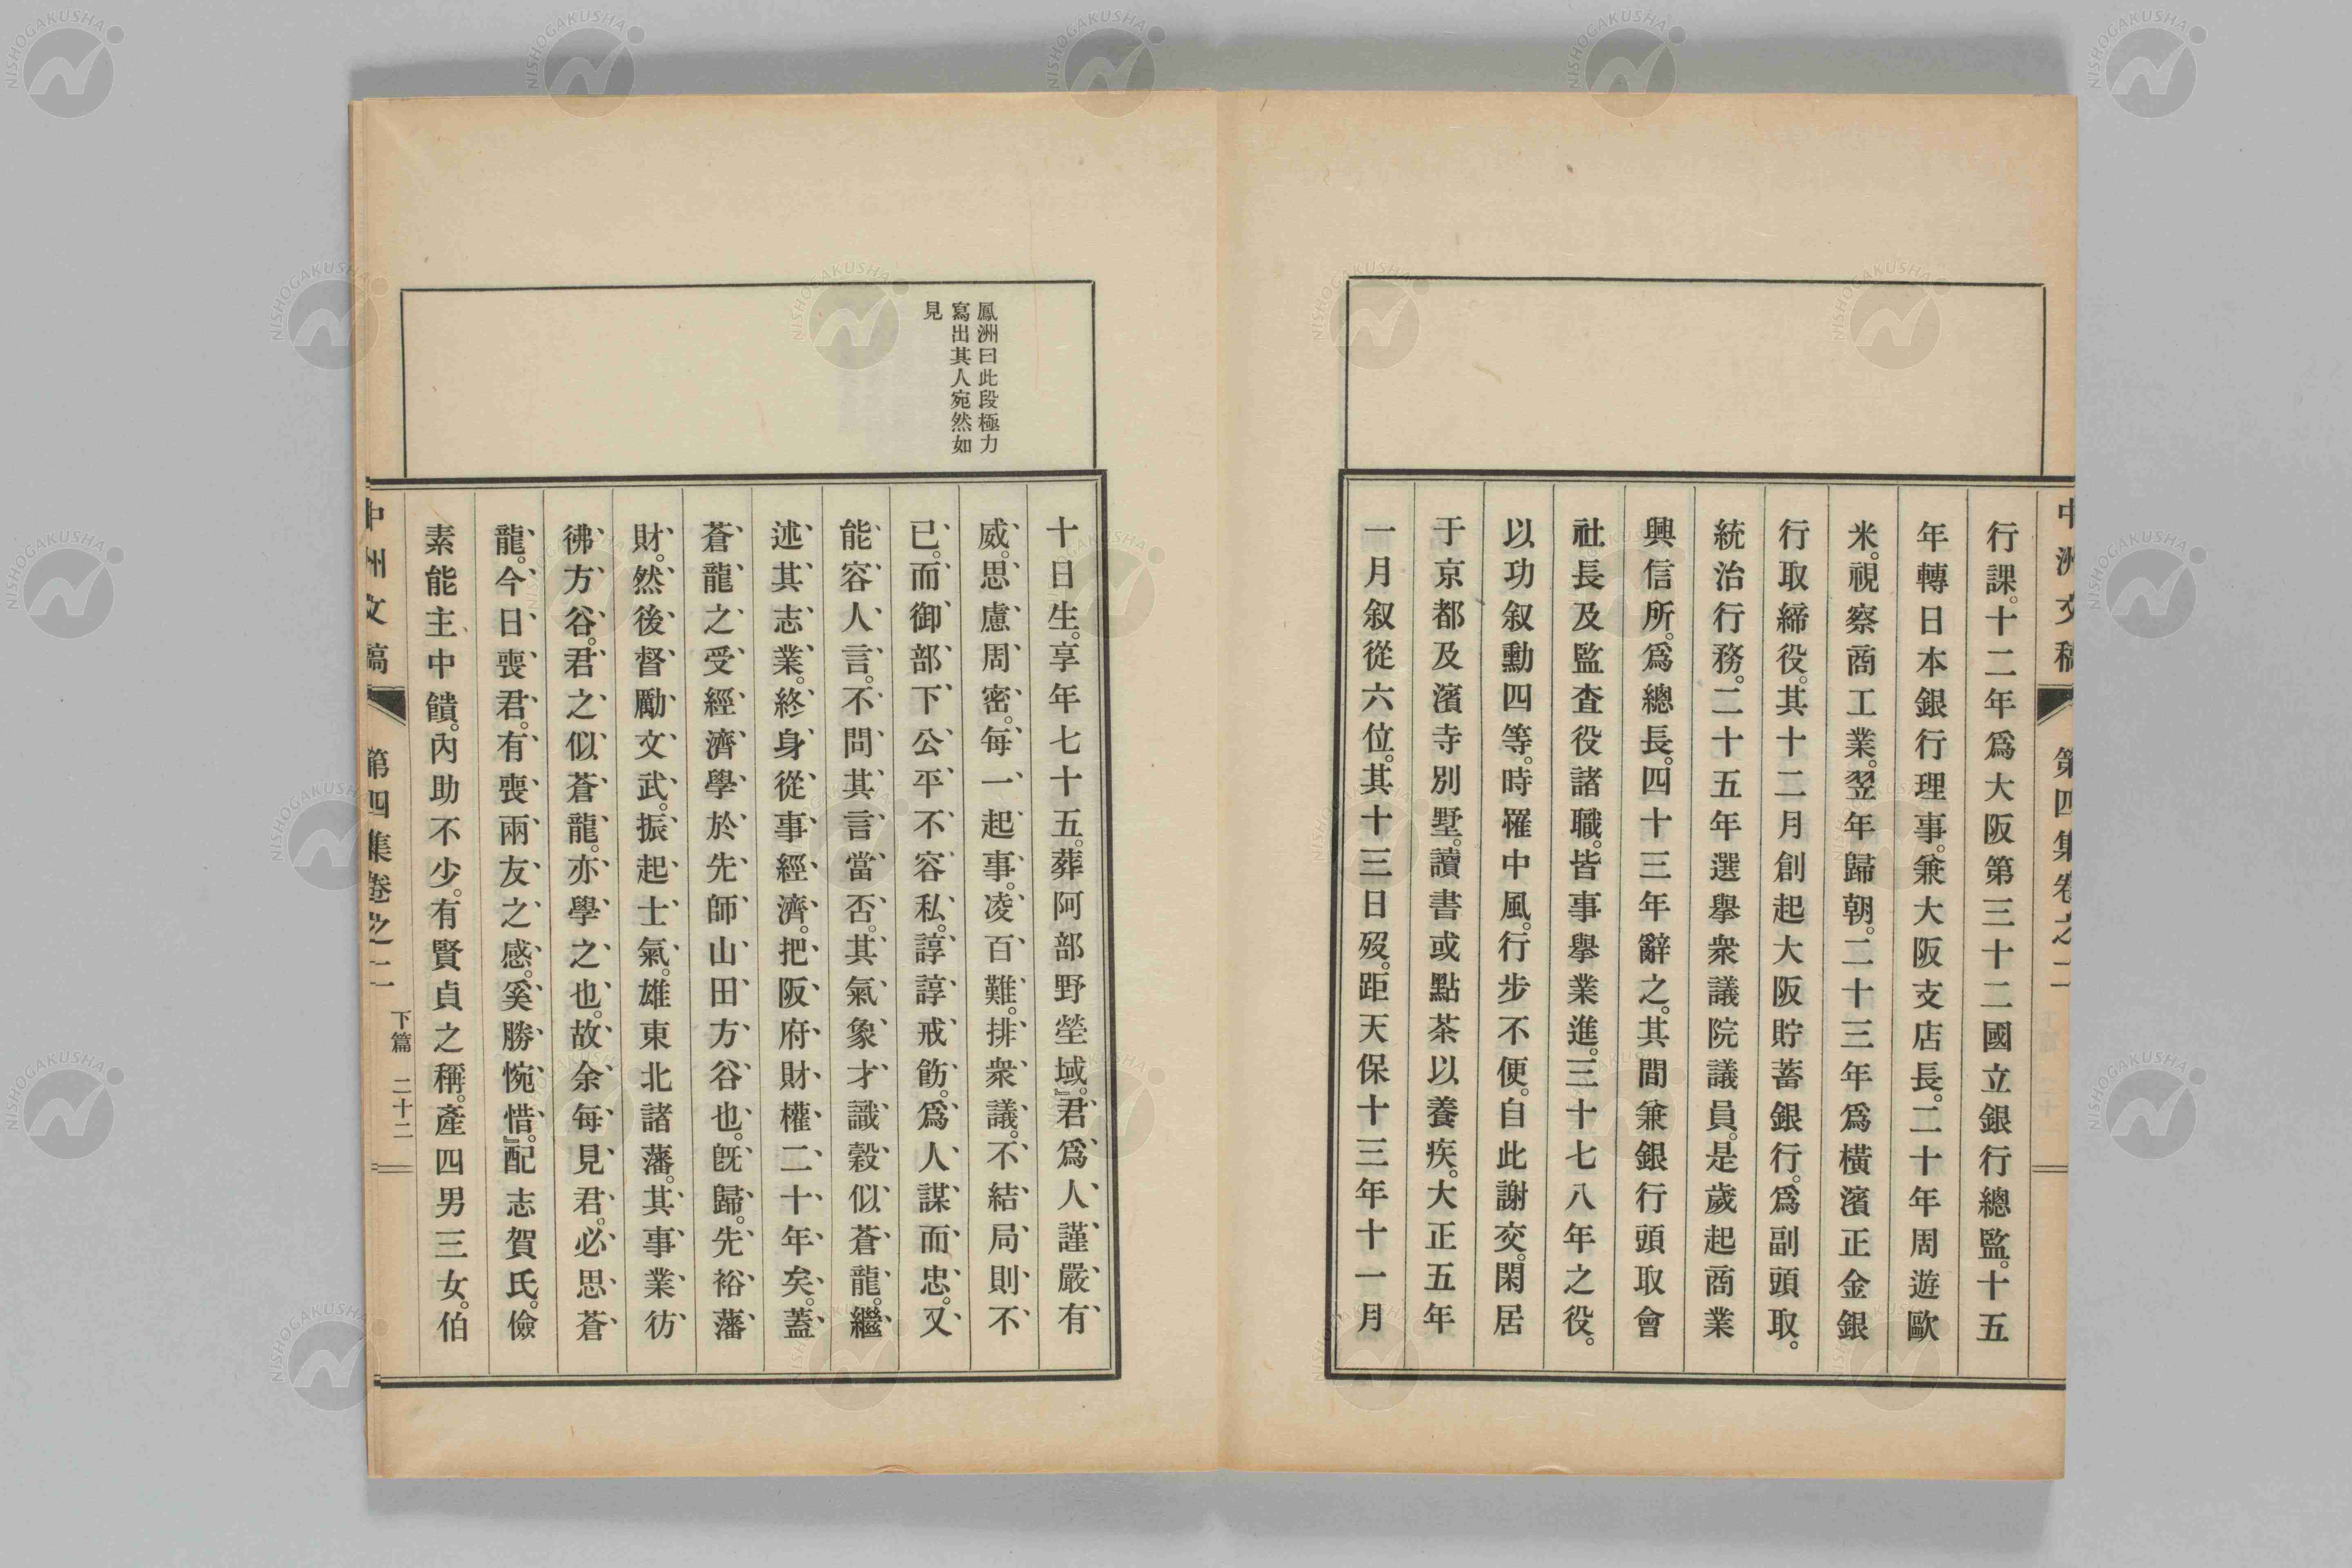 中洲文稿 第四集卷之二
行課。十二年爲大阪第三十二國立銀行總監。十五
年轉日本銀行理事。兼大阪支店長。二十年周遊歐
米。視察商工業。翌年歸朝。二十三年爲橫濱正金銀
行取締役。其十二月創起大阪貯蓄銀行。爲副頭取。
統治行務。二十五年選擧衆議院議員。是歲起商業
興信所。爲總長。四十三年辭之。其間兼銀行頭取會
社長及監査役諸職。皆事擧業進。三十七八年之役。
以功叙勳四等。時罹中風。行步不便。自此謝交。閑居
于京都及濱寺別墅。讀書或點茶以養疾。大正五年
一月叙從六位。其十三日歿。距天保十三年十一月
鳳洲曰此段極力
寫出其人宛然如
見
十日生。享年七十五。葬阿部野塋域。』君爲人謹嚴有
威。思慮周密。每一起事。凌百難。排衆議。不結局則不
已。而御部下公平不容私。諄諄戒飭。爲人謀而忠。又
能容人言。不問其言當否。其氣象才識穀似蒼龍。繼
述其志業。終身從事經濟。把阪府財權二十年矣。蓋
蒼龍之受經濟學於先師山田方谷也。旣歸。先裕藩
財。然後督勵文武。振起士氣。雄東北諸藩。其事業彷
彿方谷。君之似蒼龍。亦學之也。故余每見君。必思蒼
龍。今日喪君。有喪兩友之感。奚勝惋惜。』配志賀氏。儉
素能主中饋。內助不少。有賢貞之稱。產四男三女。伯
中洲文稿 第四集卷之二 下篇 二十二
NISHOGAKUSHA